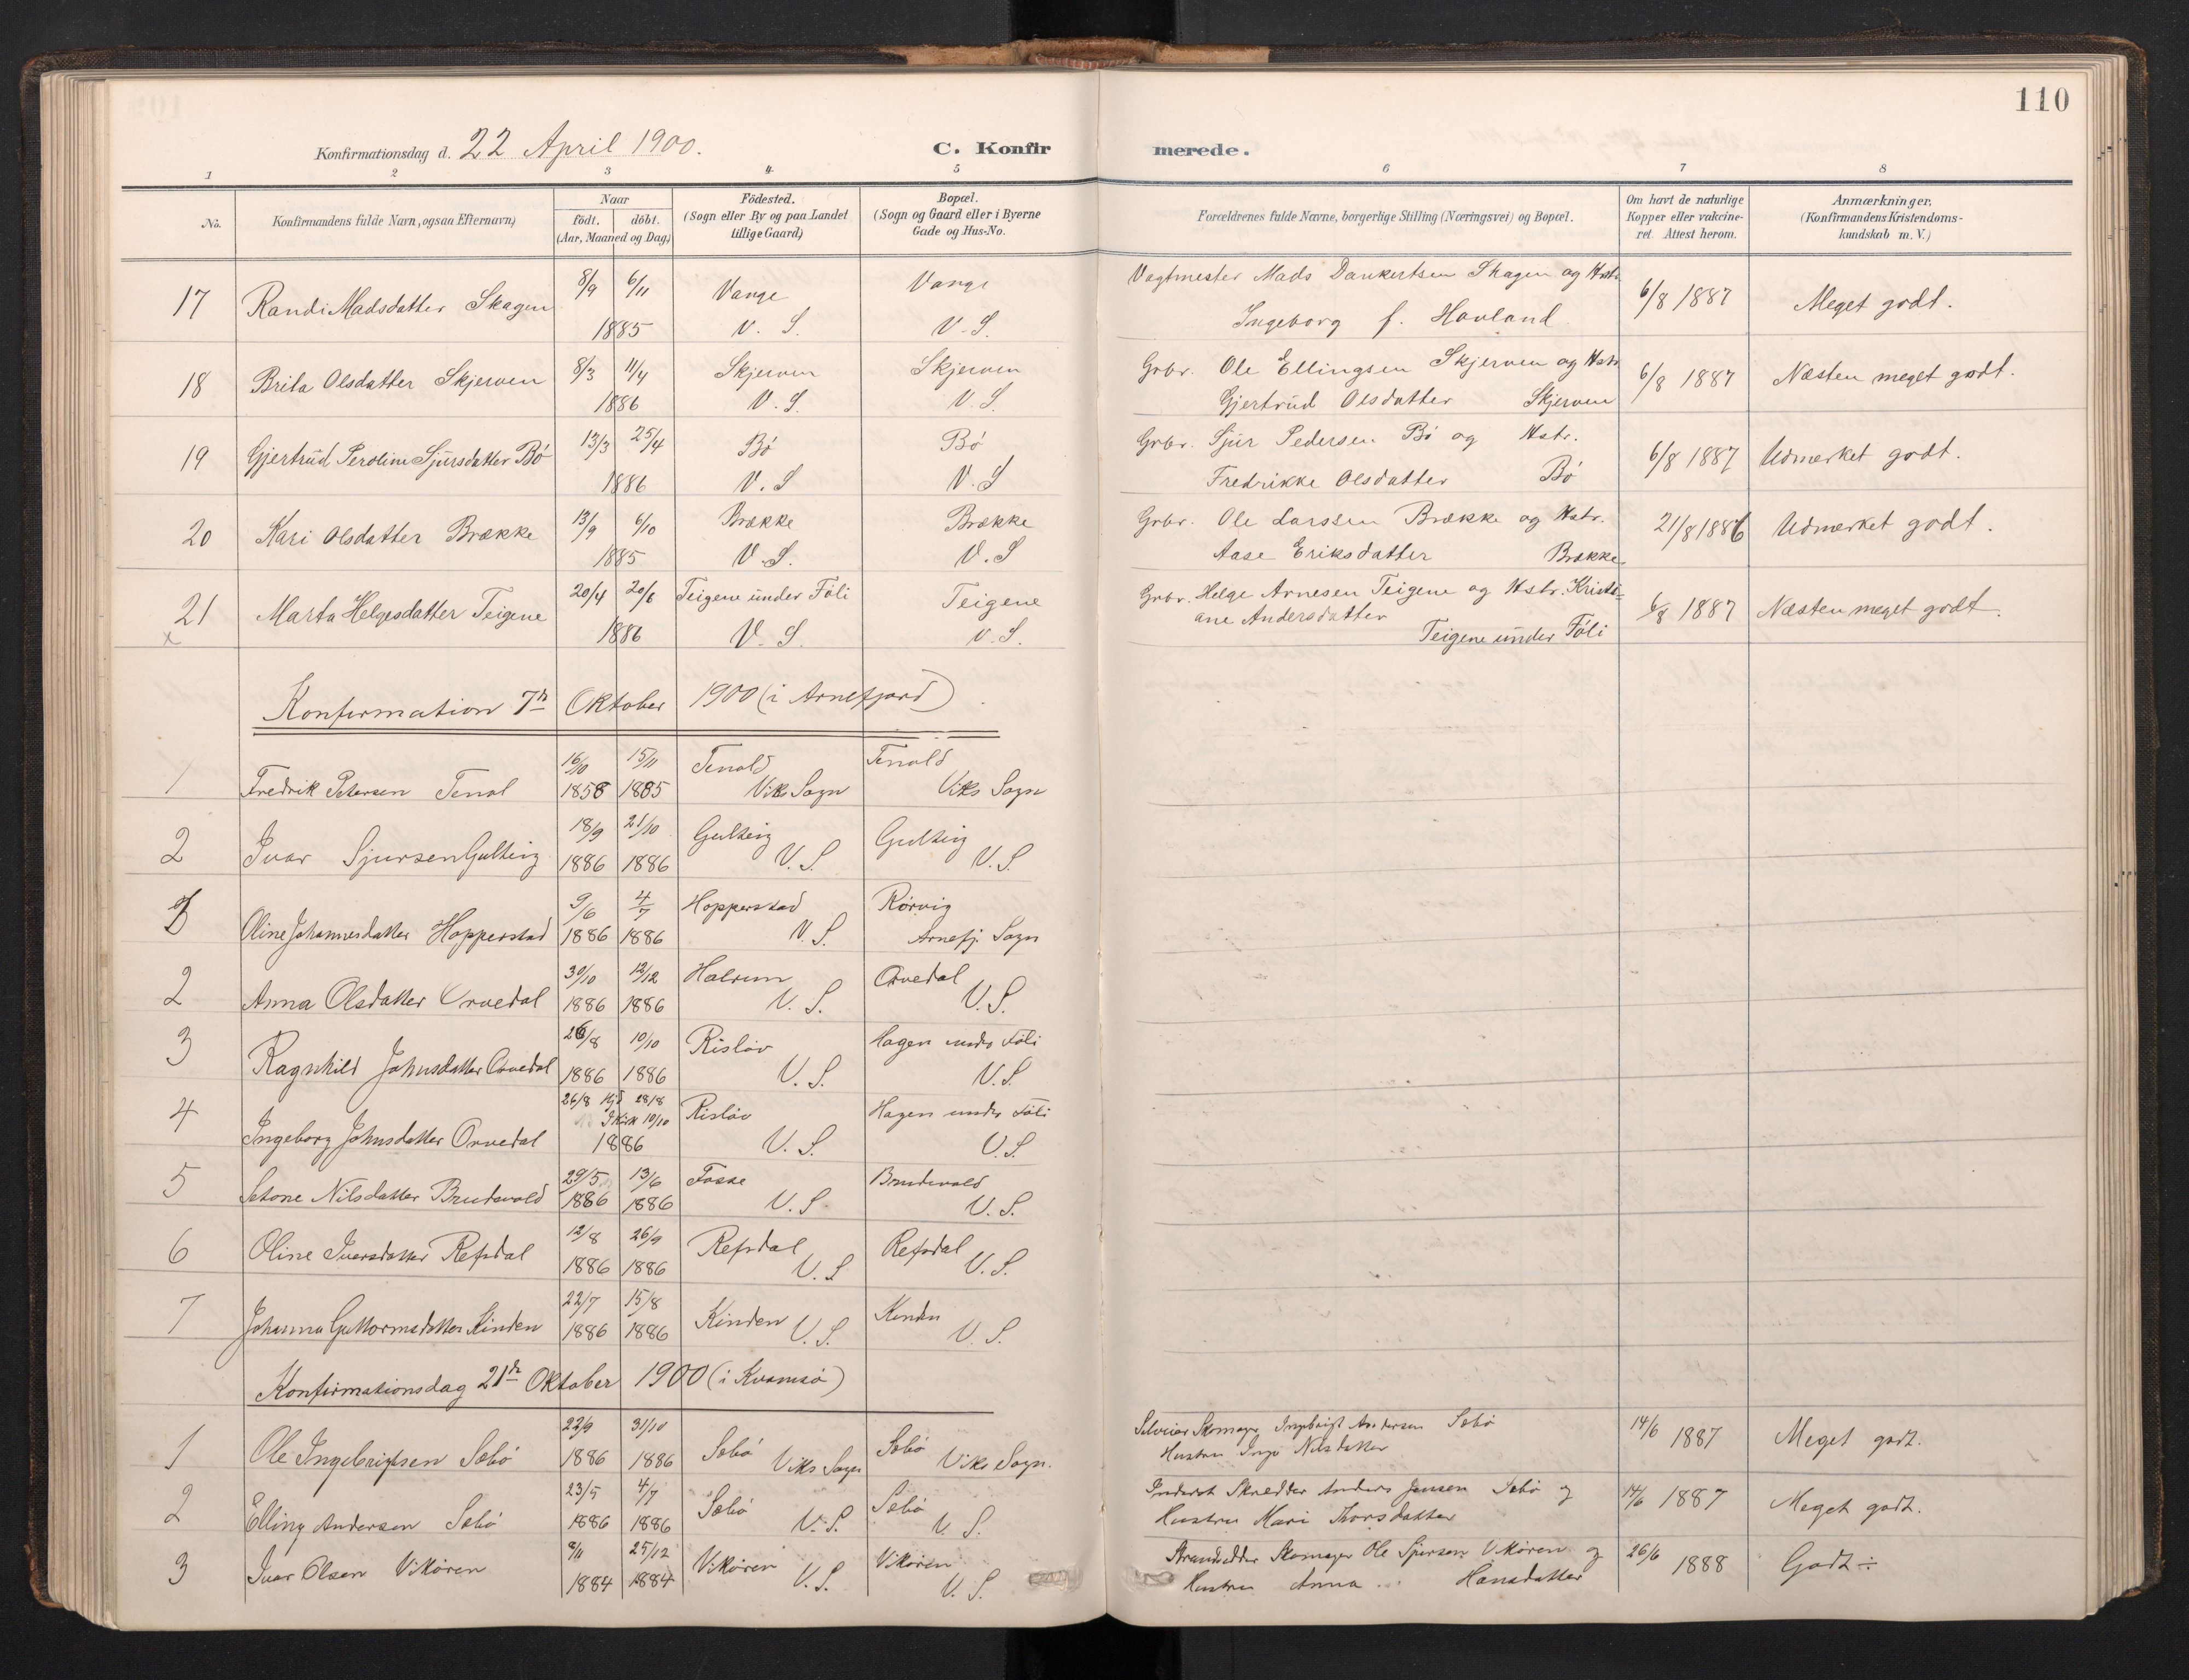 110
Konfirmationsdag d. 22 April 1900. C. Konfirmerede.
1 2 3 4 5 6 7 8
No. Konfirmandens fulde Navn, ogsaa Efternavn) Naar födt. döbt. (Aar, Maaned og Dag) Födested. (Sogn eller By og paa Landet tillige Gaard) Bopæl. (Sogn og Gaard eller i Byerne Gade og Hus-No. Forældrenes fulde Navne, borgerlige Stilling (Næringsvei) og Bopæl. Om havt de naturlige Kopper eller vakcineret. Attest herom. Anmærkninger. (Konfirmandens Kristendomskundskab m. V.)
17 Randi Madsdatter Skagen 8/9 6/11 Vange Vange Vagtmester Mads Dankertsen Skagen og Hstr. 6/8 1887 Meget godt.
1885 V. S. V. S. Ingeborg f. Hovland
18 Brita Olsdatter Skjerven 8/3 11/4 Skjerven Skjerven Grbr. Ole Ellingsen Skjerven og Hstr. 6/8 1887 Næsten meget godt.
1886 V. S. V. S. Gjertrud Olsdatter Skjerven
19 Gjertrud Peroline Sjursdatter Bö 13/3 25/4 Bö Bö Grbr. Sjur Pedersen Bö og Hstr. 6/8 1887 Udmærket godt.
1886 V. S V. S Fredrikke Olsdatter Bö
20 Kari Olsdatter Brække 13/9 6/10 Brække Brække Grbr. Ole Larssen Brække og Hstr. 21/8 1886 Udmærket godt.
1885 V. S. V. S Aase Eriksdatter Brække.
21 Marta Helgesdatter Teigene 20/4 20/6 Teigene under Föli Teigene Grbr. Helge Arnesen Teigene og Hstr. Kristi- 6/8 1887 Næsten meget godt.
x 1886 V. S. V. S. ane Andersdatter
Teigene under Föli
Konfirmation 7de Oktober 1900 (i Arnefjord)
1 Fredrik Petersen Tenol 16/10 15/11 Tenold Tenold
1858 1885 Viks Sogn Viks Sogn
2 Ivar Sjursen Gulteig 18/9 21/10 Gulteig Gulteig
1886 1886 V. S. V. S.
Oline Johannesdatter Hopperstad 9/6 4/7 Hopperstad Rörvig
1886 1886 V. S. Arnefj. Sogn
2 Anna Olsdatter Orvedal 30/10 12/12 Halrum Orvedal
1886 1886 V. S. V. S.
3 Ragnhild Johnsdatter Orvedal 26/8 10/10 Rislöv Hagen under Föli
1886 1886 V. S. V. S.
4 Ingeborg Johnsdatter Orvedal 26/8 Hjd 28/8 Rislöv Hagen under Föli
I Kirk 10/10
1886 V. S. V. S.
5 Nilsdatter Brudevold 29/5 13/6 Fosse Brudevold
1886 1886 V. S. V. S.
6 Oline Iversdatter Refsdal 12/8 26/9 Refsdal Refsdal
1886 1886 V. S V. S.
7 Johanna Guttormsdatter Kinden 22/7 15/8 Kinden Kinden
1886 1886 V. S. V. S.
Konfirmationsdag 21de Oktober 1900 (i Kvamsö)
1 Ole Ingebrigtsen Sæbö 22/9 31/10 Sæbö Sæbö Skomager Ingebrigt Andersen Sæbö 14/6 1887 Meget godt.
1886 1886 Viks Sogn Viks Sogn. Hustru Inga Nilsdatter
2 Elling Andersen Sæbö 23/5 4/7 Sæbö Sæbö Inderst Skredder Anders Jensen Sæbö og 14/6 1887 Meget godt.
1886 1886 V. S. V. S. Hustru Mari Thorsdatter
3 Ivar Olsen Vikören 8/11 25/12 Vikören Vikören Strandsidder Skomager Ole Sjursen Vikören og 26/6 1888 Godt ÷
1884 1884 V. S. V. S. Hustru Anna Hansdatter